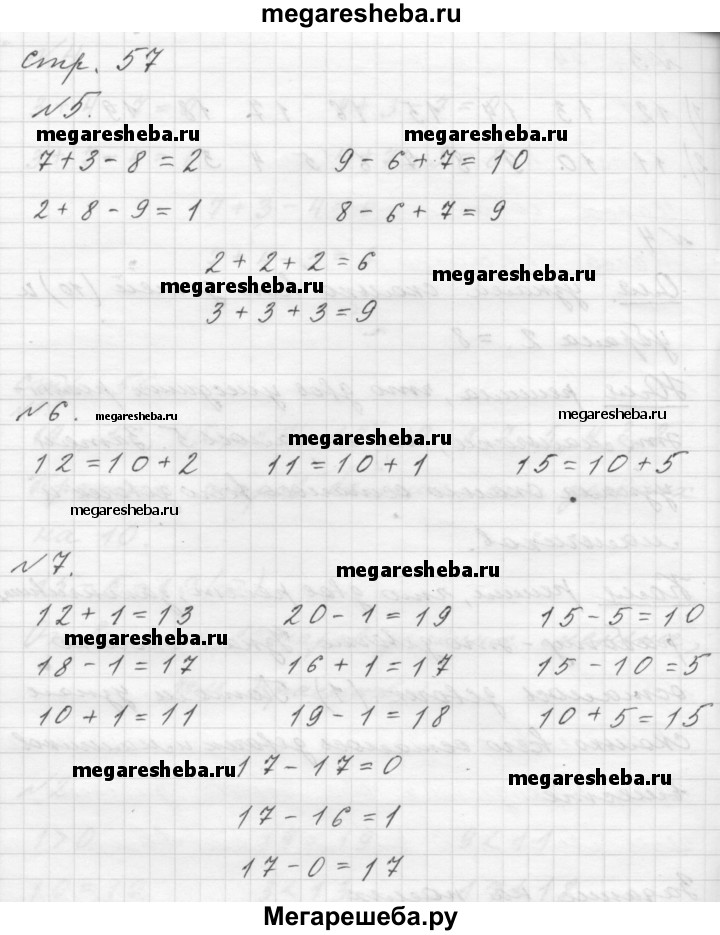 megaresheba.ru
стр. 57
№5.
megaresheba.ru megaresheba.ru
7+3-8=2 9-6+7=10
2+8-9=1 8-6+7=9
2+2+2=6
megaresheba.ru megaresheba.ru
3+3+3=9
№6. megaresheba.ru megaresheba.ru
megaresheba.ru
12=10+2 11=10+1 15=10+5
megaresheba.ru
№7.
megaresheba.ru
12+1=13 20-1=19 15-5=10
megaresheba.ru
18-1=17 16+1=17 15-10=5
10+1=11 19-1=18 10+5=15
megaresheba.ru 17-17=0 megaresheba.ru
17-16=1
17-0=17
Мегарешеба.ру